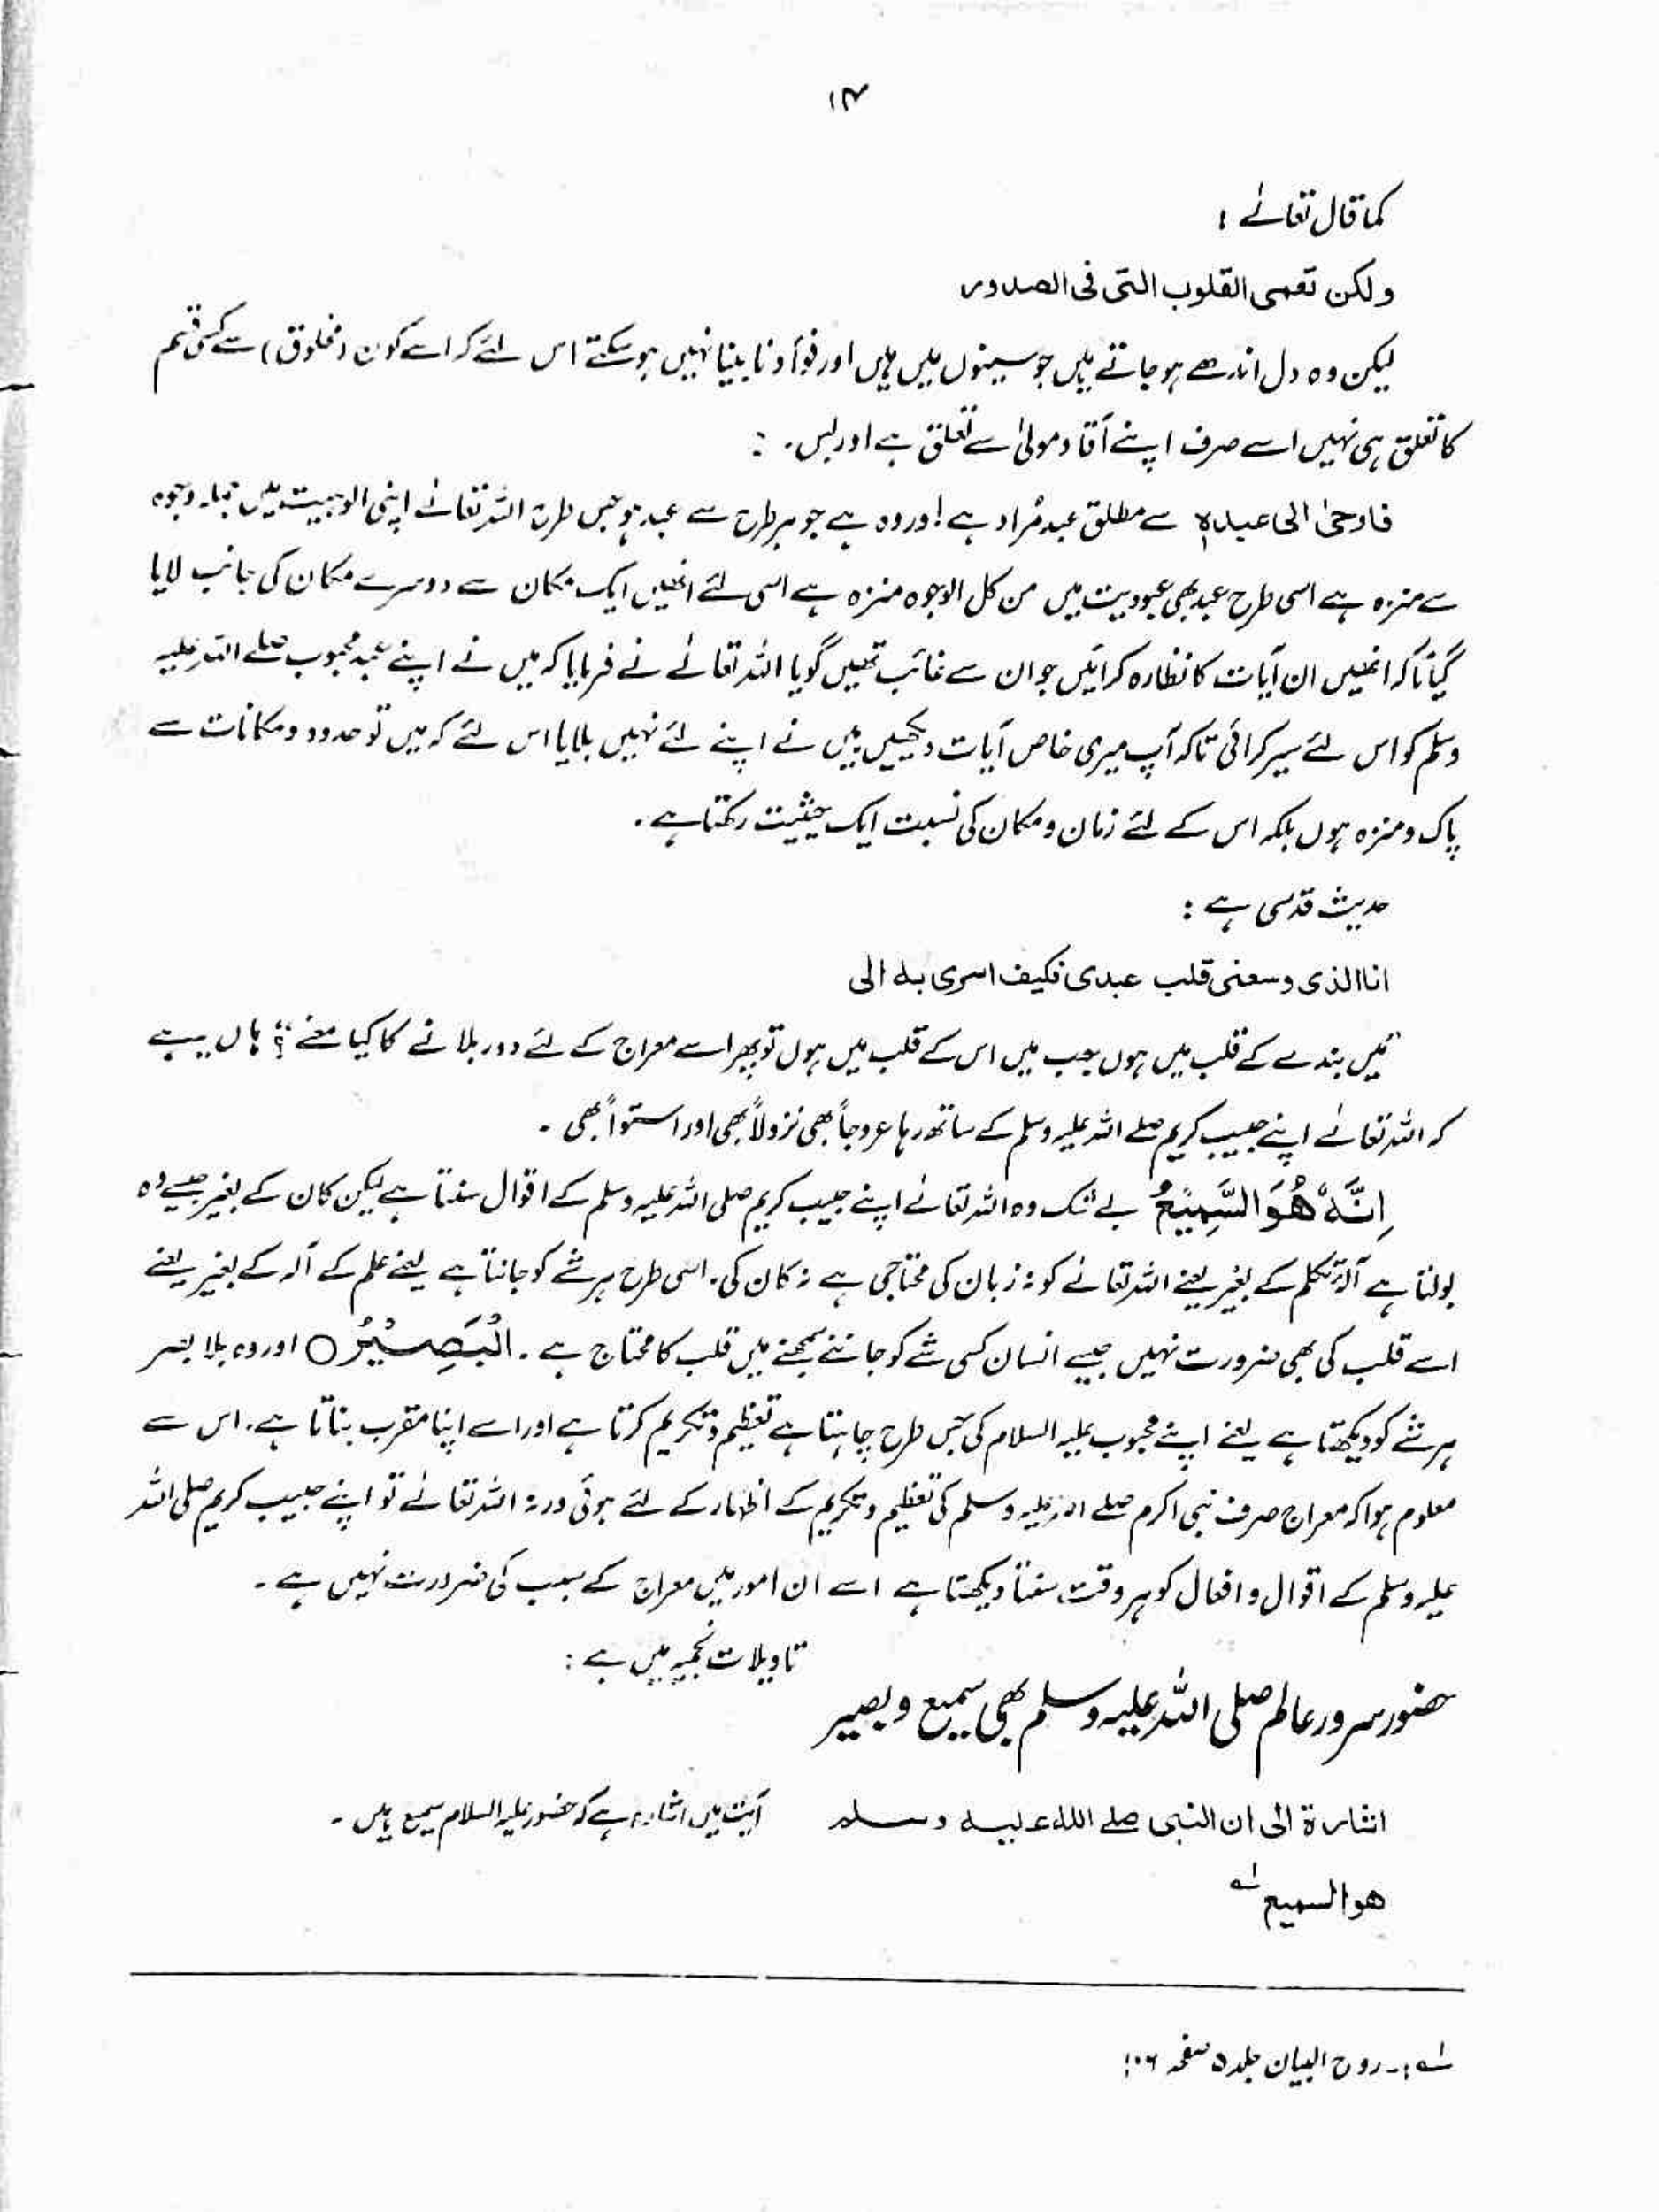 ۱۴
کما قال تعالےٰ :
ولکن تعمی القلوب التی فی الصدور
لیکن وہ دل اندھے ہو جاتے ہیں جو سینوں میں ہیں اور فواد نابینا نہیں ہو سکتے اس لئے کہ اسے کون (مخلوق) سے کسی قسم
کا تعلق ہی نہیں اسے صرف اپنے آقا و مولیٰ سے تعلق ہے اور بس۔ :
فاوحیٰ الی عبدہٖ سے مطلق عبد مُراد ہے! اور وہ ہے جو ہر طرح سے عبد ہو جس طرح اللہ تعالےٰ اپنی الوہیت میں بہمہ وجوہ
سے منزہ ہے اسی طرح عبد بھی عبودیت میں من کل الوجوہ منزہ ہے اسی لئے انھیں ایک مکان سے دوسرے مکان کی جانب لایا
گیا تاکہ انھیں ان آیات کا نظارہ کرائیں جو ان سے غائب تھیں گویا اللہ تعالےٰ نے فرمایا کہ میں نے اپنے عبد محبوب صلے اللہ علیہ
وسلم کو اس لئے سیر کرائی تاکہ آپ میری خاص آیات دیکھیں میں نے اپنے لئے نہیں بلایا اس لئے کہ میں تو حدود و مکانات سے
پاک و منزہ ہوں بلکہ اس کے لئے زمان و مکان کی نسبت ایک حیثیت رکھتا ہے۔
حدیث قدسی ہے :
انا الذی وسعنی قلب عبدی فکیف اسری بہ الی
"میں بندے کے قلب میں ہوں جب میں اس کے قلب میں ہوں تو پھر اسے معراج کے لئے دور بلانے کا کیا معنے"؟ ہاں یہ ہے
کہ اللہ تعالےٰ اپنے حبیب کریم صلے اللہ علیہ وسلم کے ساتھ رہا عروجاً بھی نزولاً بھی اور استواً بھی ۔
اِنَّہٗ ھُوَ السَّمِیْعُ بے شک وہ اللہ تعالےٰ اپنے حبیب کریم صلی اللہ علیہ وسلم کے اقوال سنتا ہے لیکن کان کے بغیر جیسے وہ
بولتا ہے آلۂ تکلم کے بغیر یعنے اللہ تعالےٰ کو نہ زبان کی محتاجی ہے نہ کان کی۔ اسی طرح ہر شے کو جانتا ہے یعنے علم کے آلہ کے بغیر یعنے
اسے قلب کی بھی ضرورت نہیں جیسے انسان کسی شے کو جاننے سمجھنے میں قلب کا محتاج ہے ۔ الْبَصِیْرُ ○ اور وہ بلا بصر
ہر شے کو دیکھتا ہے یعنے اپنے محبوب علیہ السلام کی جس طرح چاہتا ہے تعظیم و تکریم کرتا ہے اور اسے اپنا مقرب بناتا ہے۔ اس سے
معلوم ہوا کہ معراج صرف نبی اکرم صلے اللہ علیہ وسلم کی تعظیم و تکریم کے اظہار کے لئے ہوئی ورنہ اللہ تعالےٰ تو اپنے حبیب کریم صلی اللہ
علیہ وسلم کے اقوال و افعال کو ہر وقت سنتا دیکھتا ہے اسے ان امور میں معراج کے سبب کی ضرورت نہیں ہے ۔
تاویلات نجمیہ میں ہے :
حضور سرور عالم صلی اللہ علیہ وسلم بھی سمیع و بصیر
اشارۃ الی ان النبی صلے اللہ علیہ وسلم آیت میں اشارہ ہے کہ حضور علیہ السلام سمیع ہیں ۔
ھو السمیع لہ
لہ :۔ روح البیان جلد ۵ صفحہ ۱۰۶